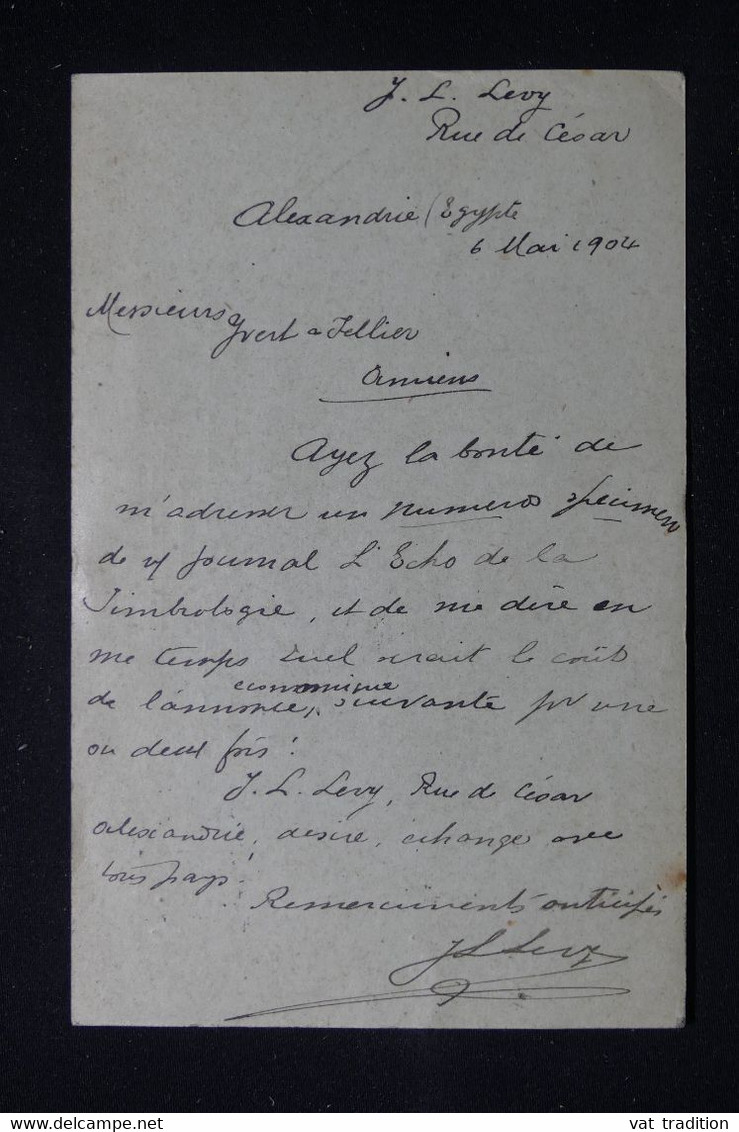 J. L. Levy
Rue de César
Alexandrie / Egypte
6 Mai 1904
Messieurs
Yvert & Tellier
Amiens
Ayez la bonté de
m'adresser un numero specimen
de vf journal L'Echo de la
Timbrologie, et de me dire en
me temps quel serait le coût
economique
de l'annonce, suivante pr une
ou deux fois:
J. L. Levy, Rue de César
Alexandrie, desire, echange avec
tous pays!
Remerciements anticipés
J L Levy
vat tradition